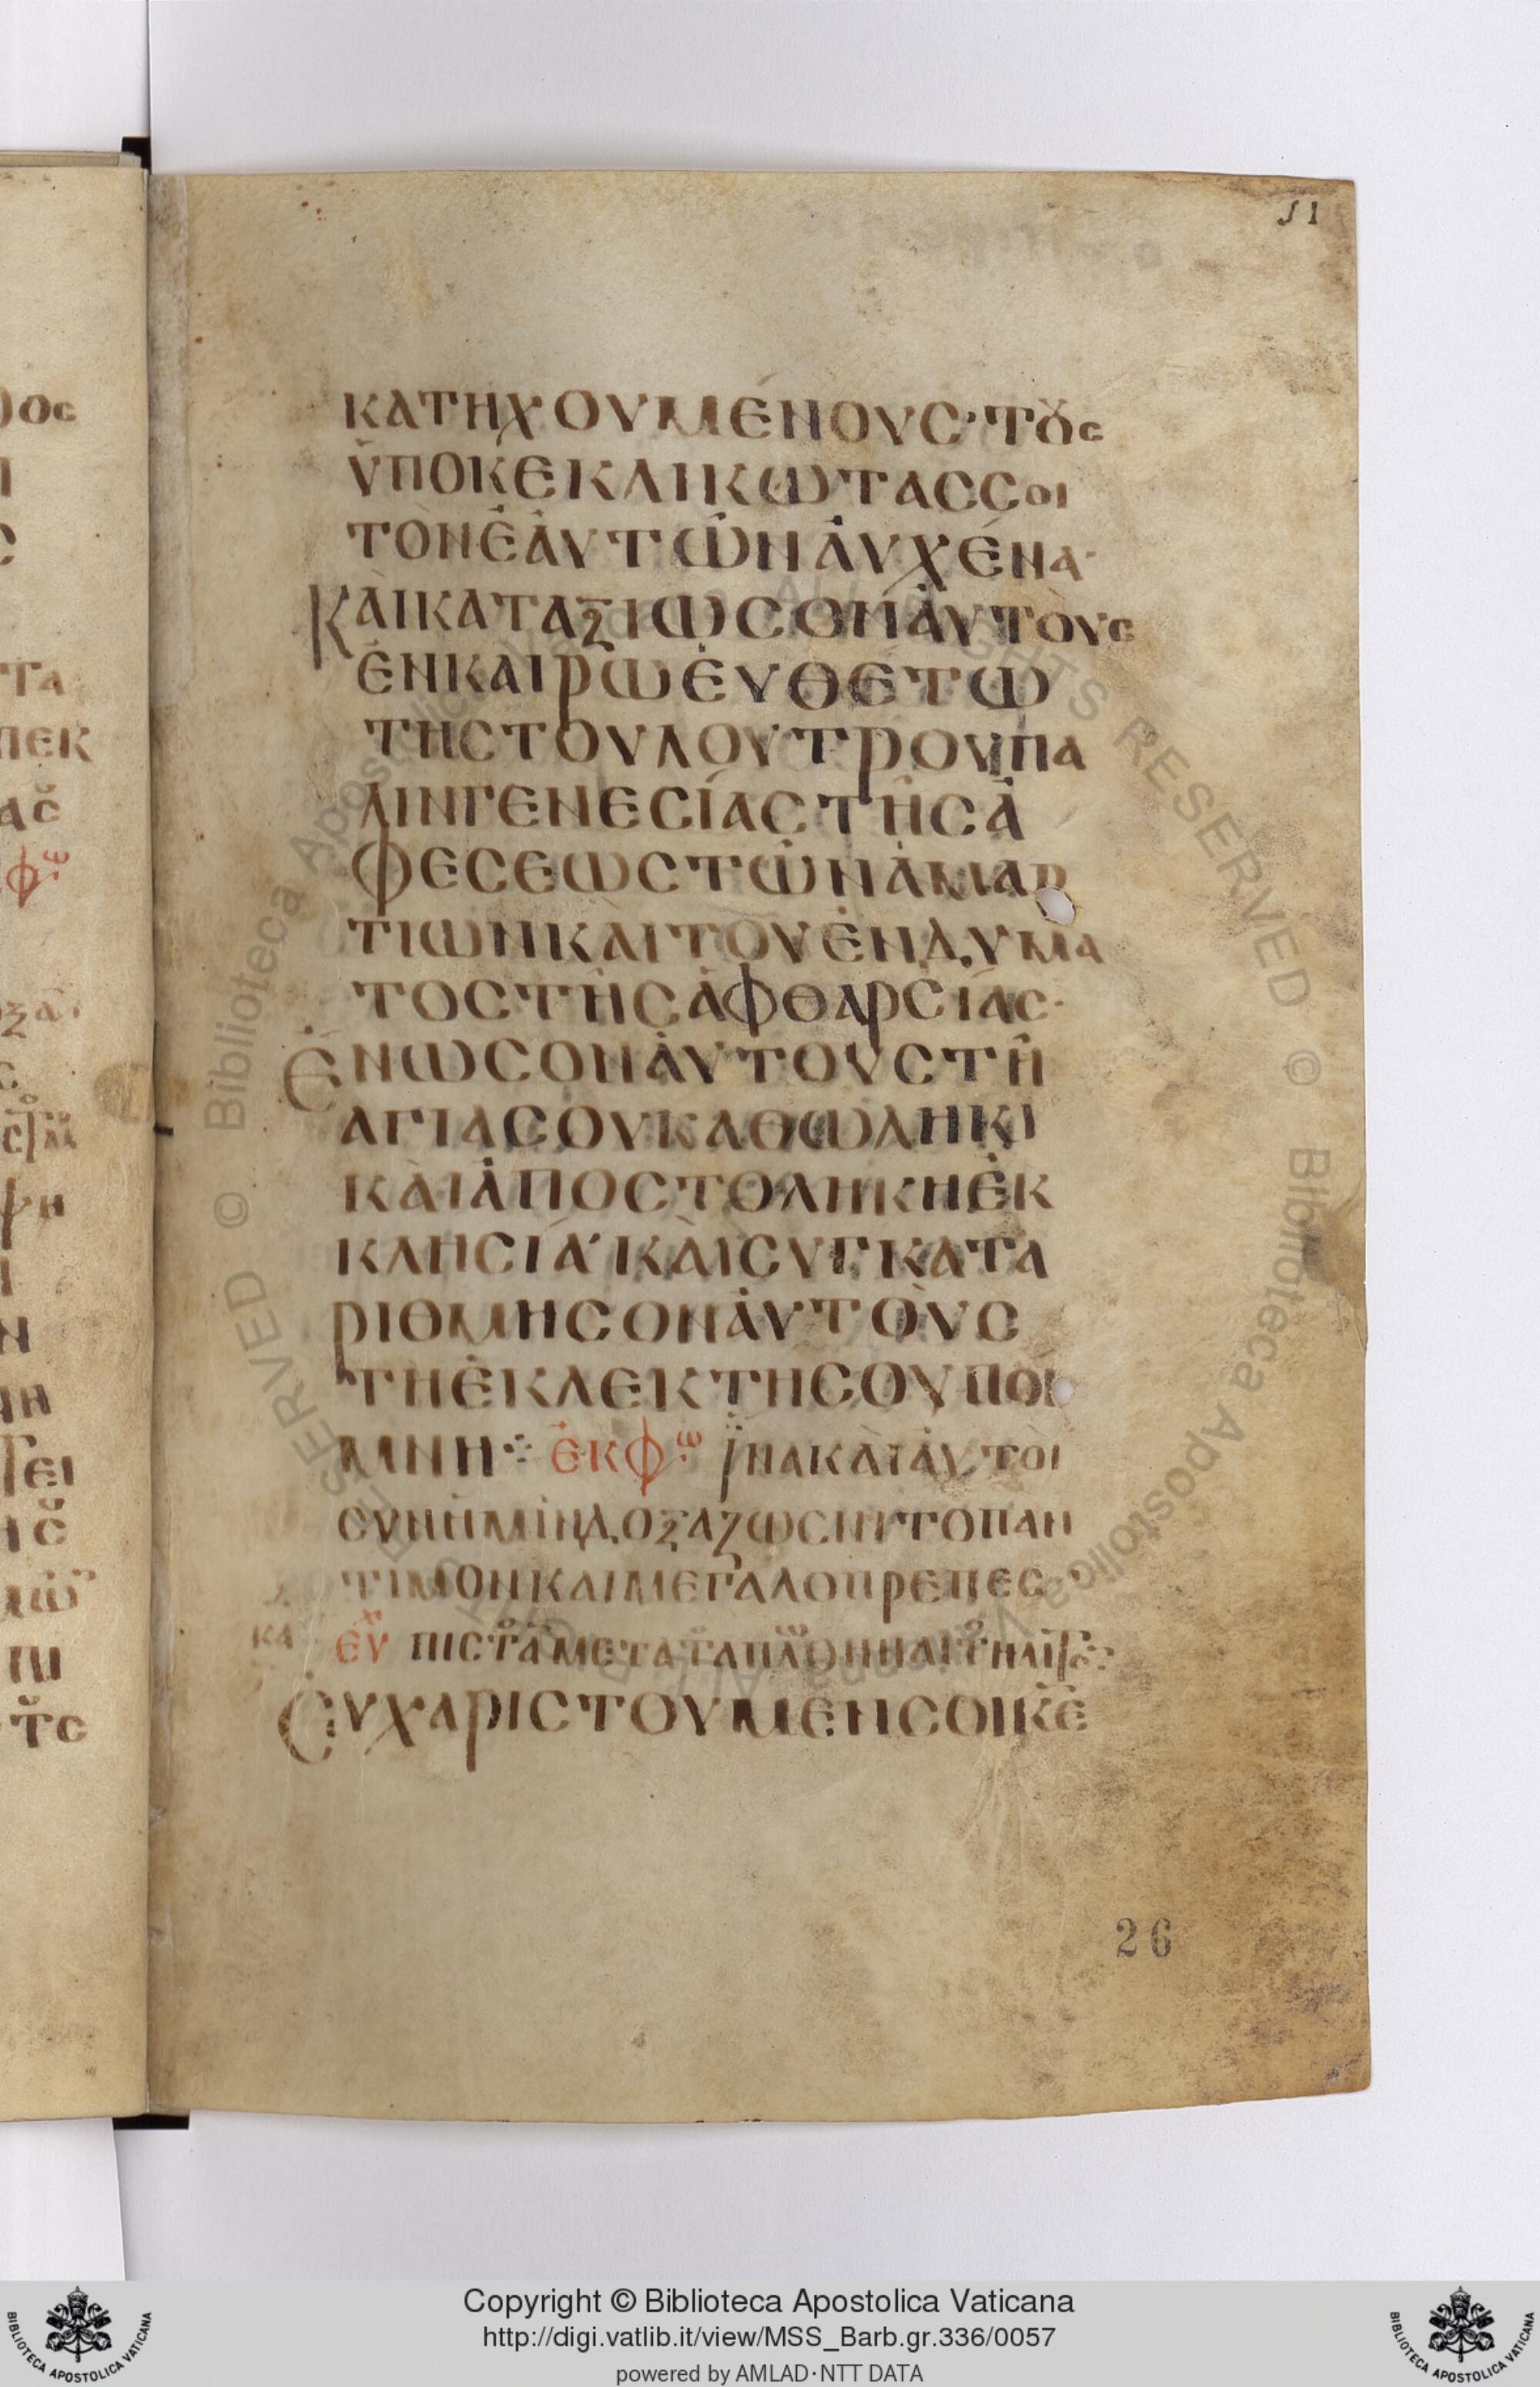 51
ΚΑΤΗΧΟΥΜΕΝΟΥC· ΤȢC
ΫΠΟΚΕΚΛΙΚΩΤΑC CΟΙ
ΤΟΝ ΕΑΥΤΩΝ ΑΥΧΕΝΑ·
ΚΑΙ ΚΑΤΑΞΙΩCΟΝ ΑΥΤΟΥC
ΕΝ ΚΑΙΡΩ ΕΥΘΕΤΩ
ΤΗC ΤΟΥ ΛΟΥΤΡΟΥ ΠΑ
ΛΙΝΓΕΝΕCΙΑC ΤΗC Α
ΦΕCΕΩC ΤΩΝ ΑΜΑΡ
ΤΙΩΝ ΚΑΙ ΤΟΥ ΕΝΔΥΜΑ
ΤΟC ΤΗC ΑΦΘΑΡCΙΑC·
ΕΝΩCΟΝ ΑΥΤΟΥC ΤΗ
ΑΓΙΑ CΟΥ ΚΑΘΩΛΗΚΙ
ΚΑΙ ΑΠΟCΤΟΛΗΚΗ ΕΚ
ΚΛΗCΙΑ· ΚΑΙ CΥΓΚΑΤΑ
ΡΙΘΜΗCΟΝ ΑΥΤΟΥC
ΤΗ ΕΚΛΕΚΤΗ CΟΥ ΠΟΙ
ΜΝΗ ⁘ ΕΚΦΩ ΪΝΑ ΚΑΙ ΑΥΤΟΙ
CΥΝ ΗΜΙΝ ΔΟΞΑΖΩCΗΝ ΤΟ ΠΑΝ
ΤΙΜΟΝ ΚΑΙ ΜΕΓΑΛΟΠΡΕΠΕC
ΚΑ ΕΥΧ ΠΙCΤ ΜΕΤΑ
ΕΥΧΑΡΙCΤΟΥΜΕΝ CΟΙ ΚΕ
26
ALL RIGHTS RESERVED © Biblioteca Apostolica Vaticana
Copyright © Biblioteca Apostolica Vaticana
http://digi.vatlib.it/view/MSS_Barb.gr.336/0057
powered by AMLAD·NTT DATA
BIBLIOTECA APOSTOLICA VATICANA
BIBLIOTECA APOSTOLICA VATICANA